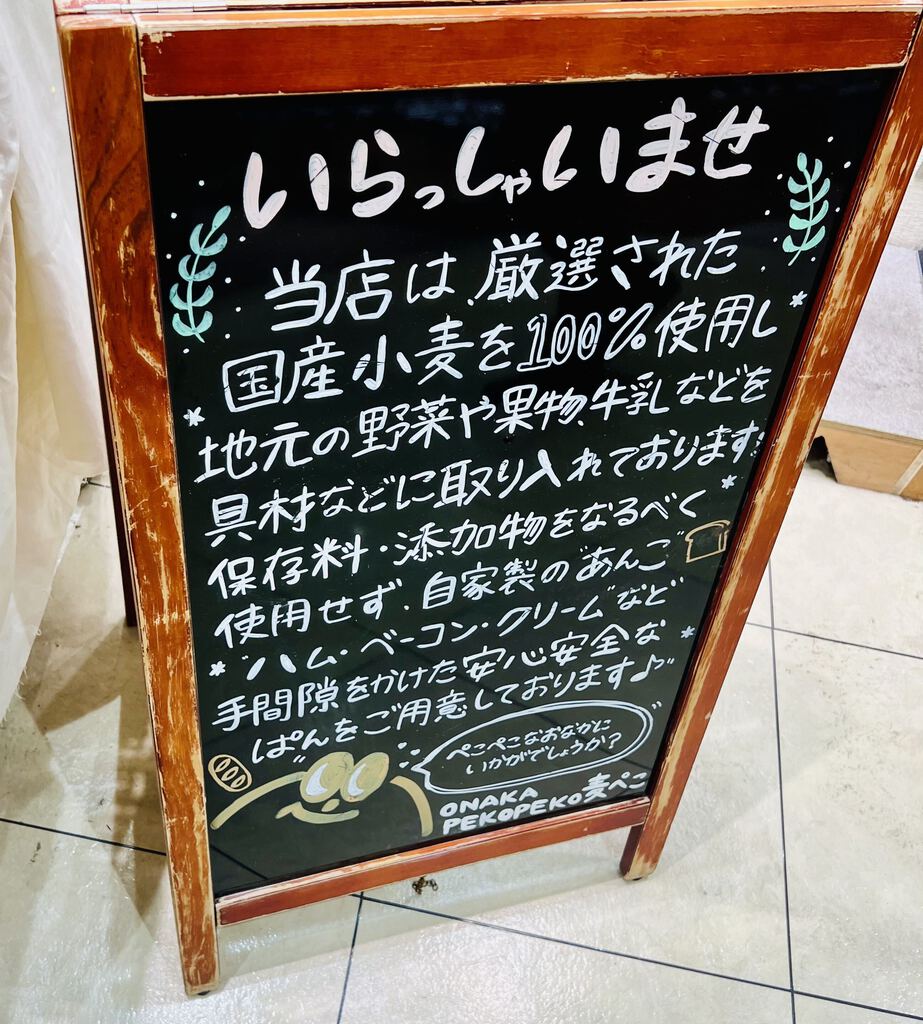 いらっしゃいませ
当店は、厳選された
国産小麦を100%使用し
地元の野菜や果物、牛乳などを
具材などに取り入れております!
保存料・添加物をなるべく
使用せず、自家製の"あんこ"
"ハム・ベーコン・クリーム"など
手間隙をかけた安心安全な
"ぱん"をご用意しております♪
ぺこぺこなおなかに
いかがでしょうか?
ONAKA
PEKOPEKO麦ぺこ